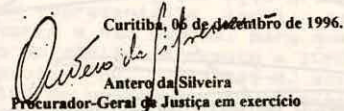 Curitiba, 06 de dezembro de 1996.
Antero da Silveira
Procurador-Geral de Justiça em exercício